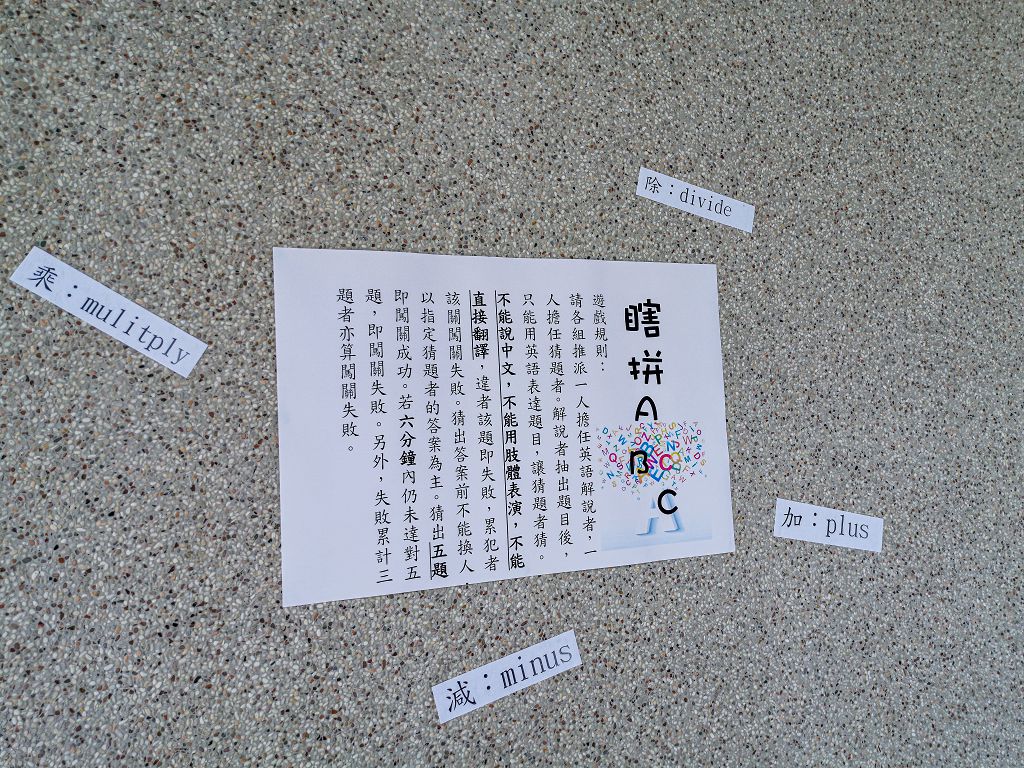 除：divide
乘：mulitply
瞎拼ABC
遊戲規則：
請各組推派一人擔任英語解說者，一
人擔任猜題者。解說者抽出題目後，
只能用英語表達題目，讓猜題者猜。
不能說中文，不能用肢體表演，不能
直接翻譯，違者該題即失敗，累犯者
該關闖關失敗。猜出答案前不能換人，
以指定猜題者的答案為主。猜出五題
即闖關成功。若六分鐘內仍未達對五
題，即闖關失敗。另外，失敗累計三
題者亦算闖關失敗。
加：plus
減：minus